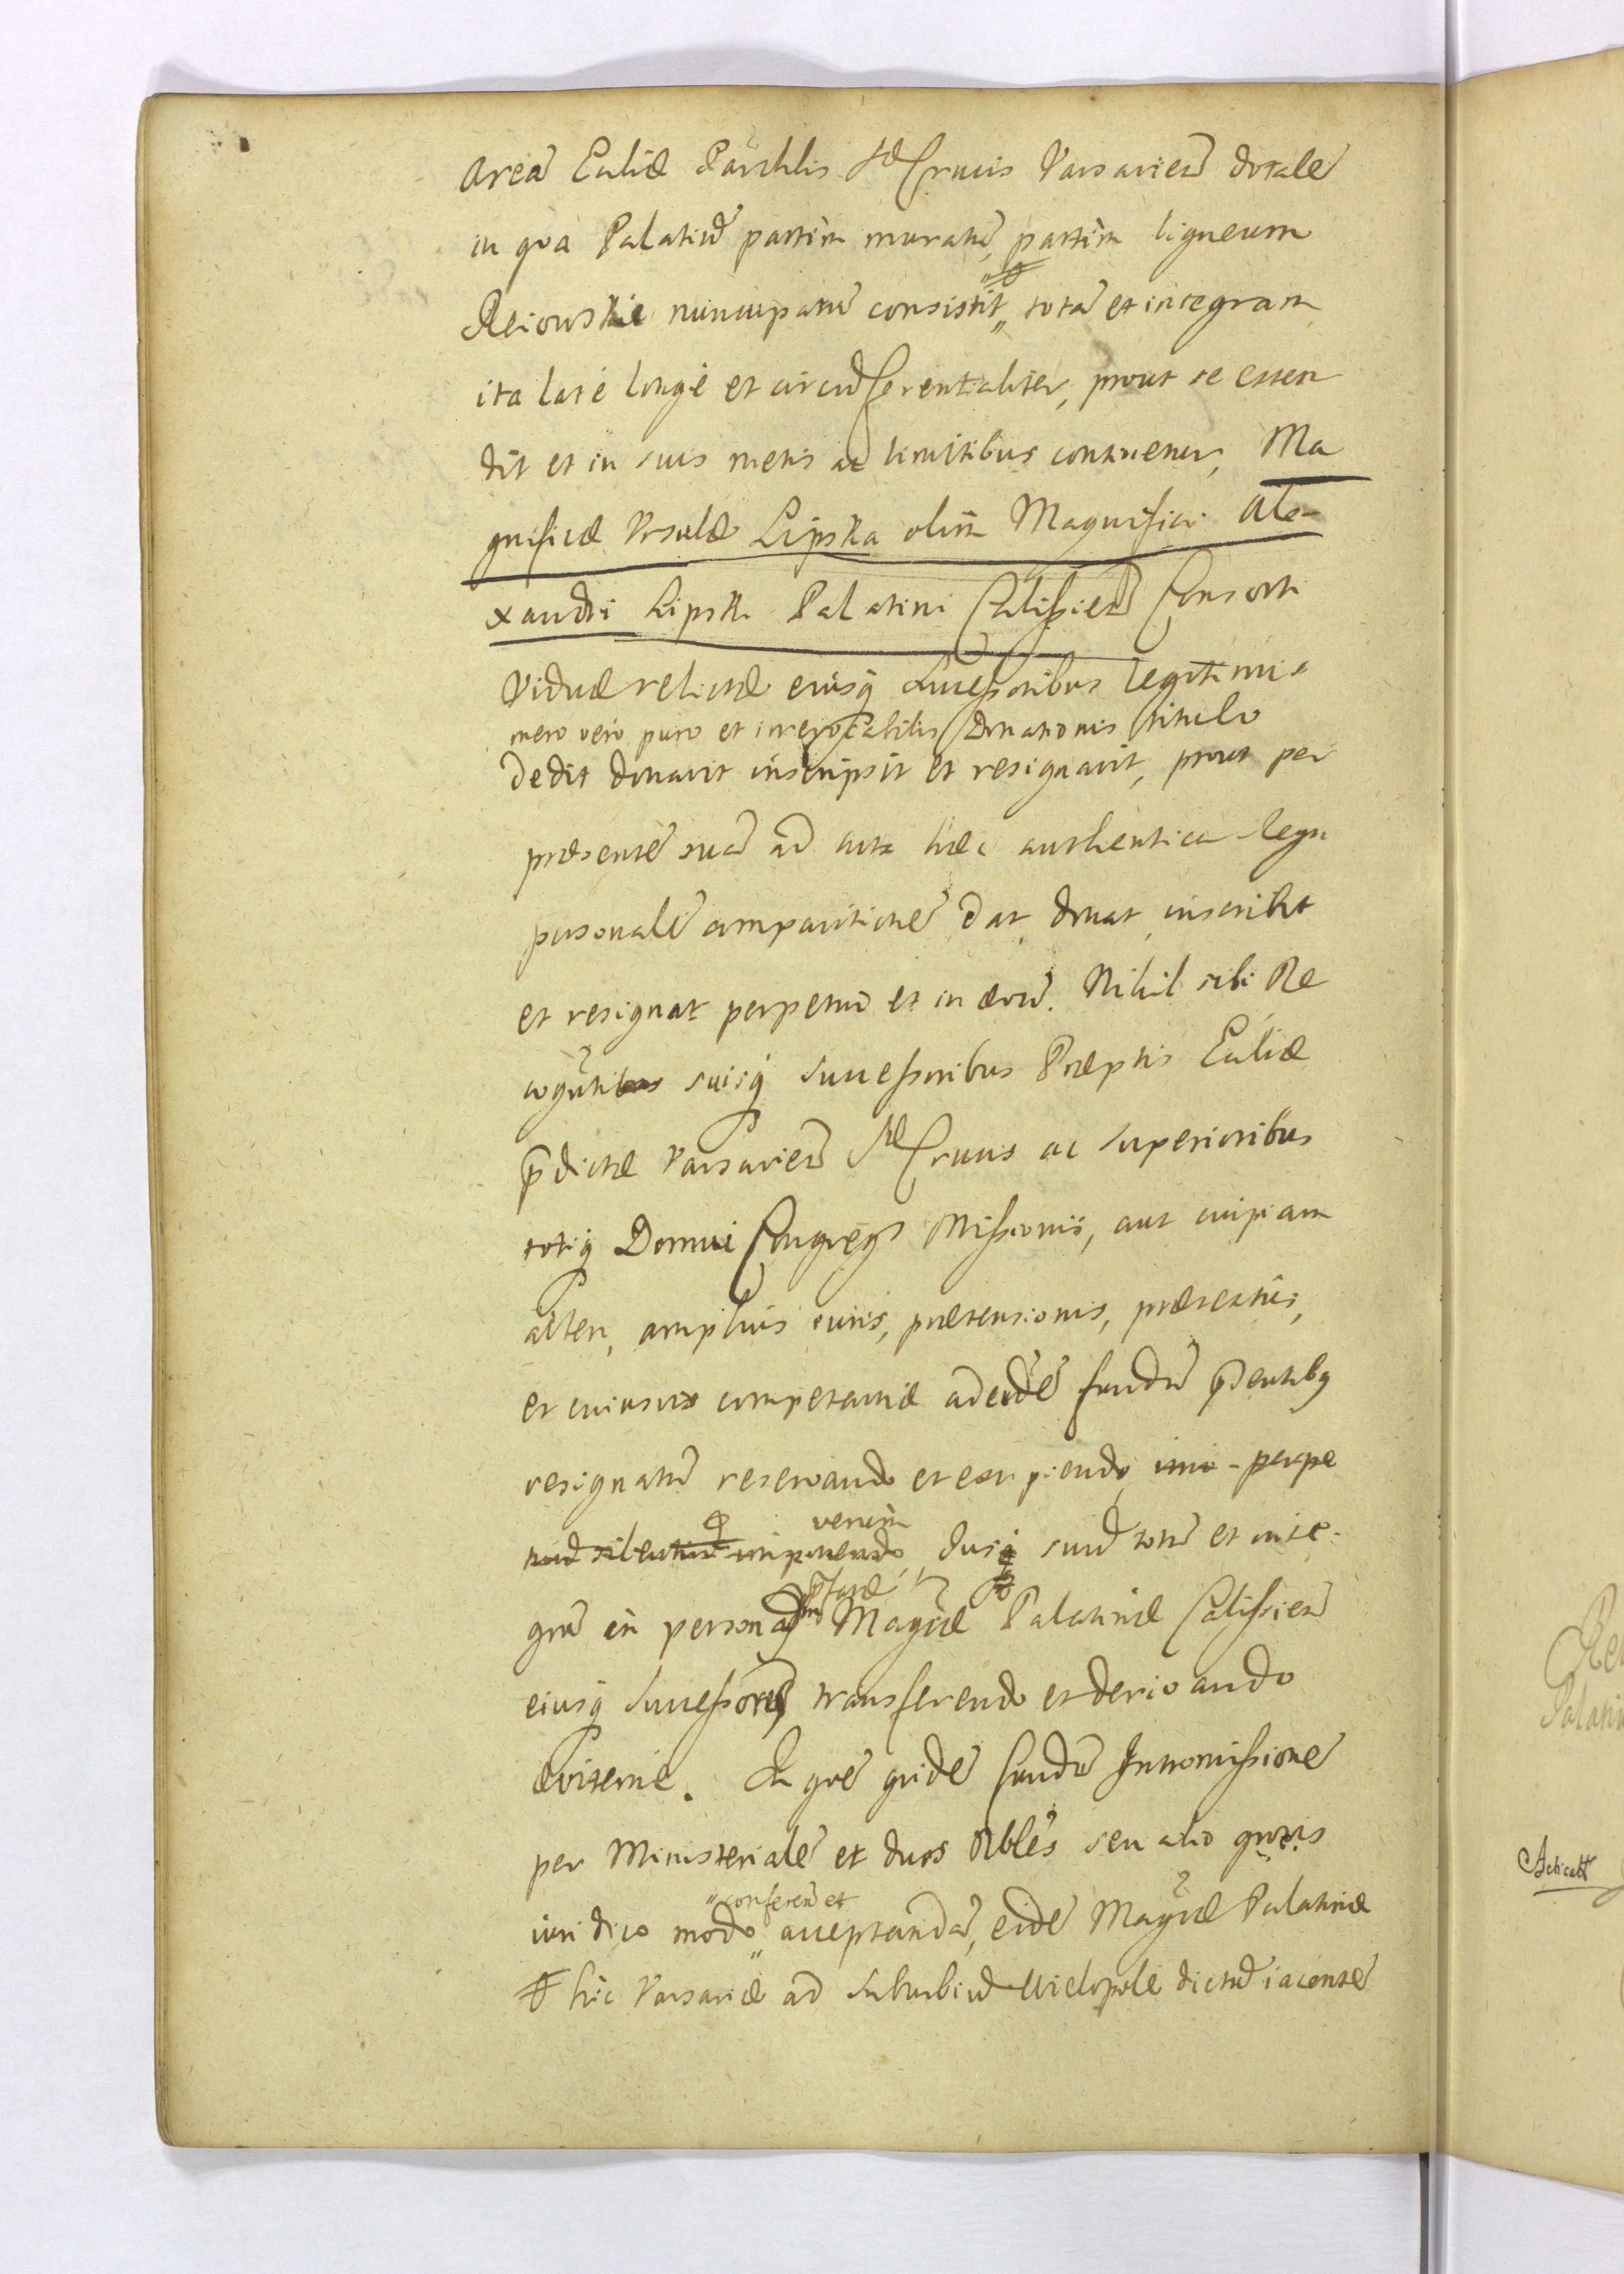 Areā Ecliæ Parchlis Stæ Crucis Varsavien̄ dotalē
in qva Palatiū partim muratū, partim ligneum
Reiowskie nuncupatū consistit # totā et integram
ita latè longè et circūferentialiter, prout se exten
dit et in suis metis ac limitibus continetur, Ma
gnificæ Ursulæ Lipska olim Magnifici Ale-
xandri Lipski Palatini Calissien̄ Consorti
Viduæ relictæ eiusq̨ Successoribus legitimis
mero vero puro et irrevocabilis Donationis titulo
Dedit donavit inscripsit et resignavit, prout per
præsentē suā ad acta hæc authentica Regia
personalē comparitionē dat donat inscribit
et resignat perpetuo et in ævū. Nihil sibi Re
cogn̄ti suisq̨ Successoribus Præptis Ecliæ
p̄dictæ Varsavien̄ Stæ Crucis ac superioribus
totiq̨ Domui Congregs Missionis, aut cuipiam
alteri, amplius iuris, prætensionis, prætextus,
et cuiusvis competentiæ ad eūdē fundū p̄sentibq
resignatū reservando et excipiendo, imo perpe
tuū silentiū imponendo verùm Jusq̨ suū totū et inte-
grū in personā p̄fatæ Magcæ Palatinæ Calissien̄
eiusq̨ Successores transferendo et derivando
æviternè. In quē quidē fundū Intromissionē
per Ministerialē et duos Nobles seu alio quovis
iuridico modo "conferen̄ et acceptandā, eidē Magcæ Palatinæ
# hic Varsaviæ ad Suburbiū Wielopole dictū iacentē
Palatin
Acticatt